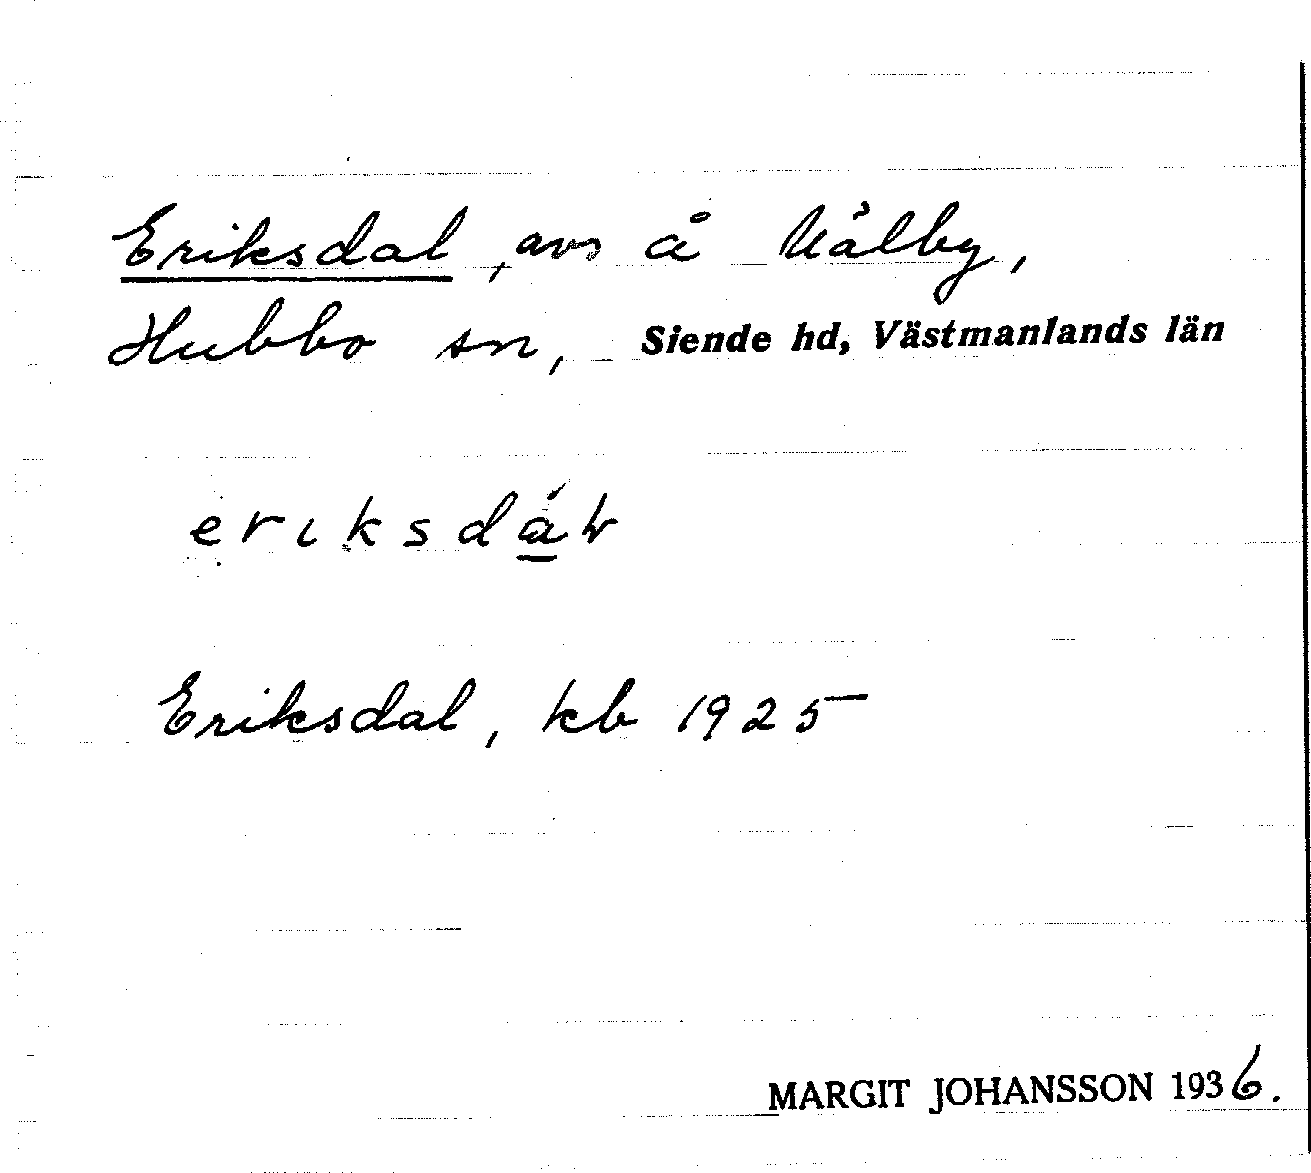 Eriksdal, avs å Målby,
Hubbo sn, Siende hd, Västmanlands län
Eriksdal, kb 1925
MARGIT JOHANSSON 1936.